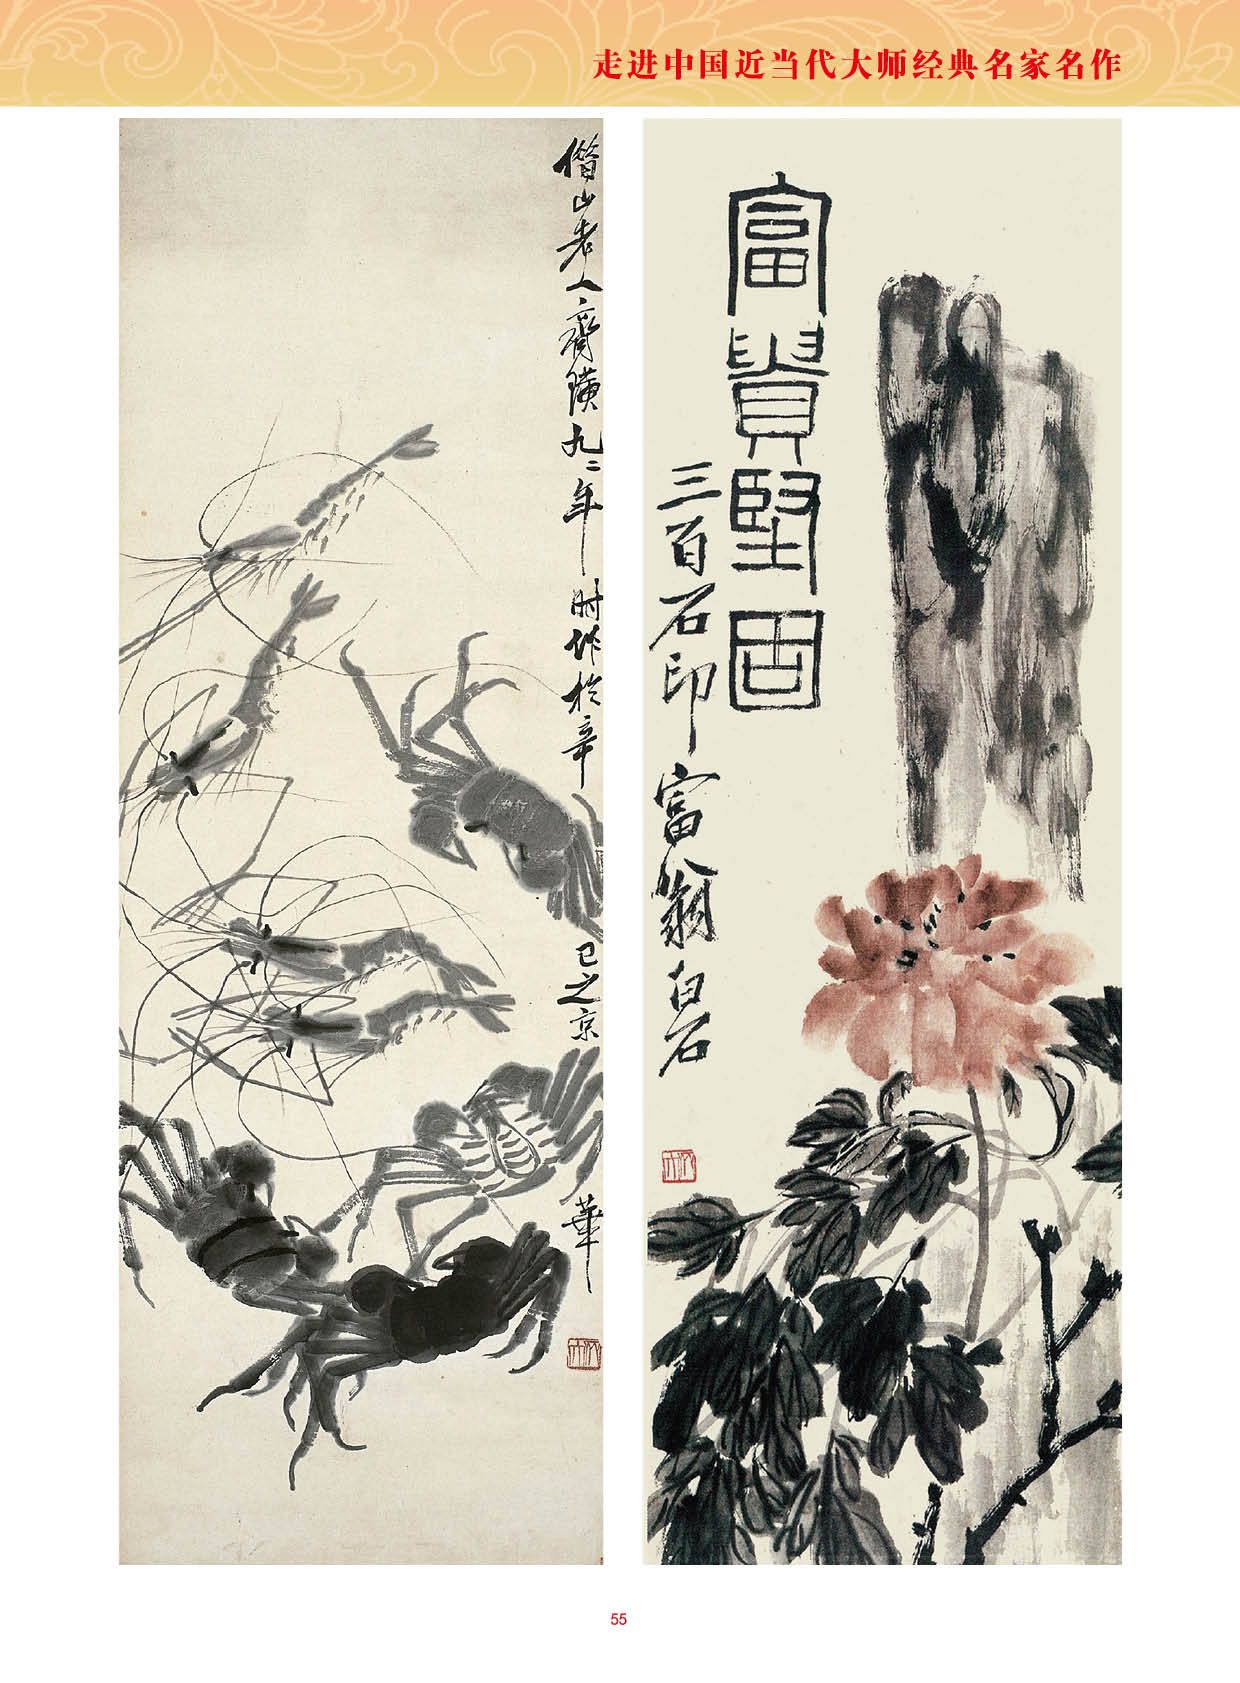 走进中国近当代大师经典名家名作
借山老人齊璜九二年時作於辛巳之京華
富貴堅固
三百石印富翁白石
55